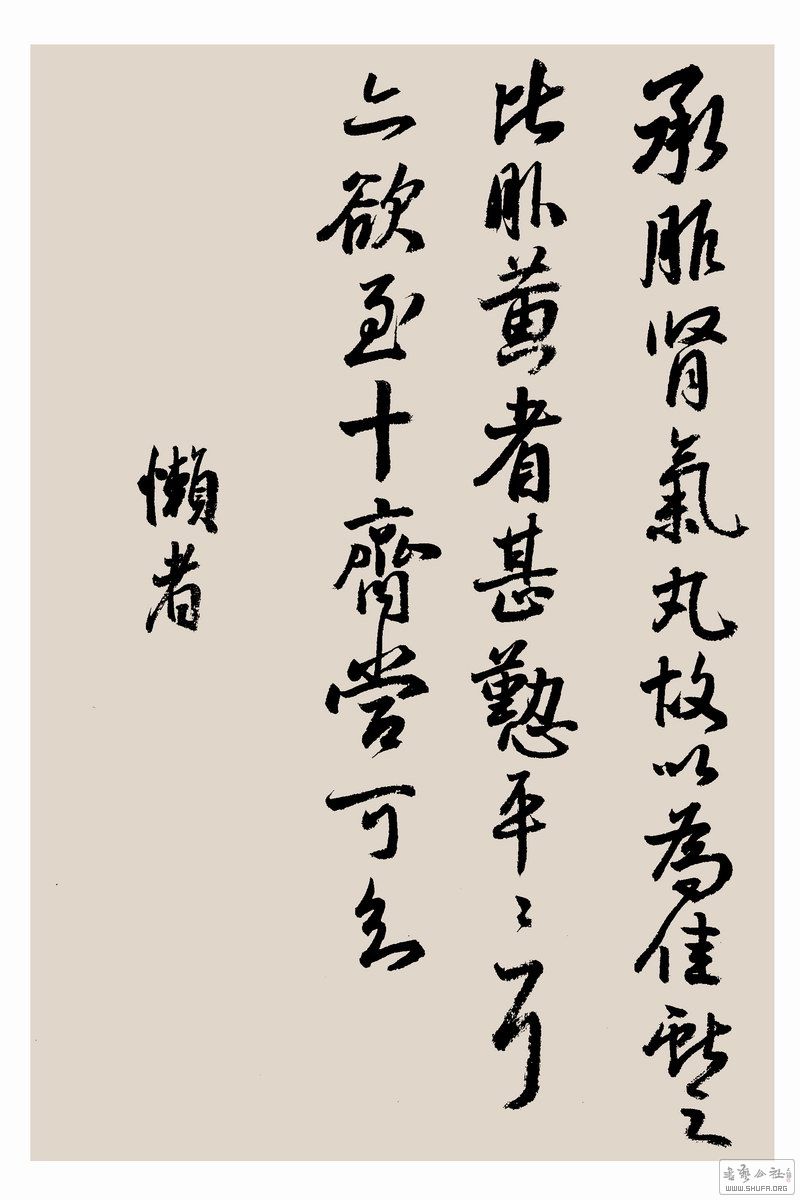 承服腎氣丸故以為佳獻之
比服黃耆甚懃平〻耳
亦欲至十齊當可知
懶者
書藝公社
WWW.SHUFA.ORG